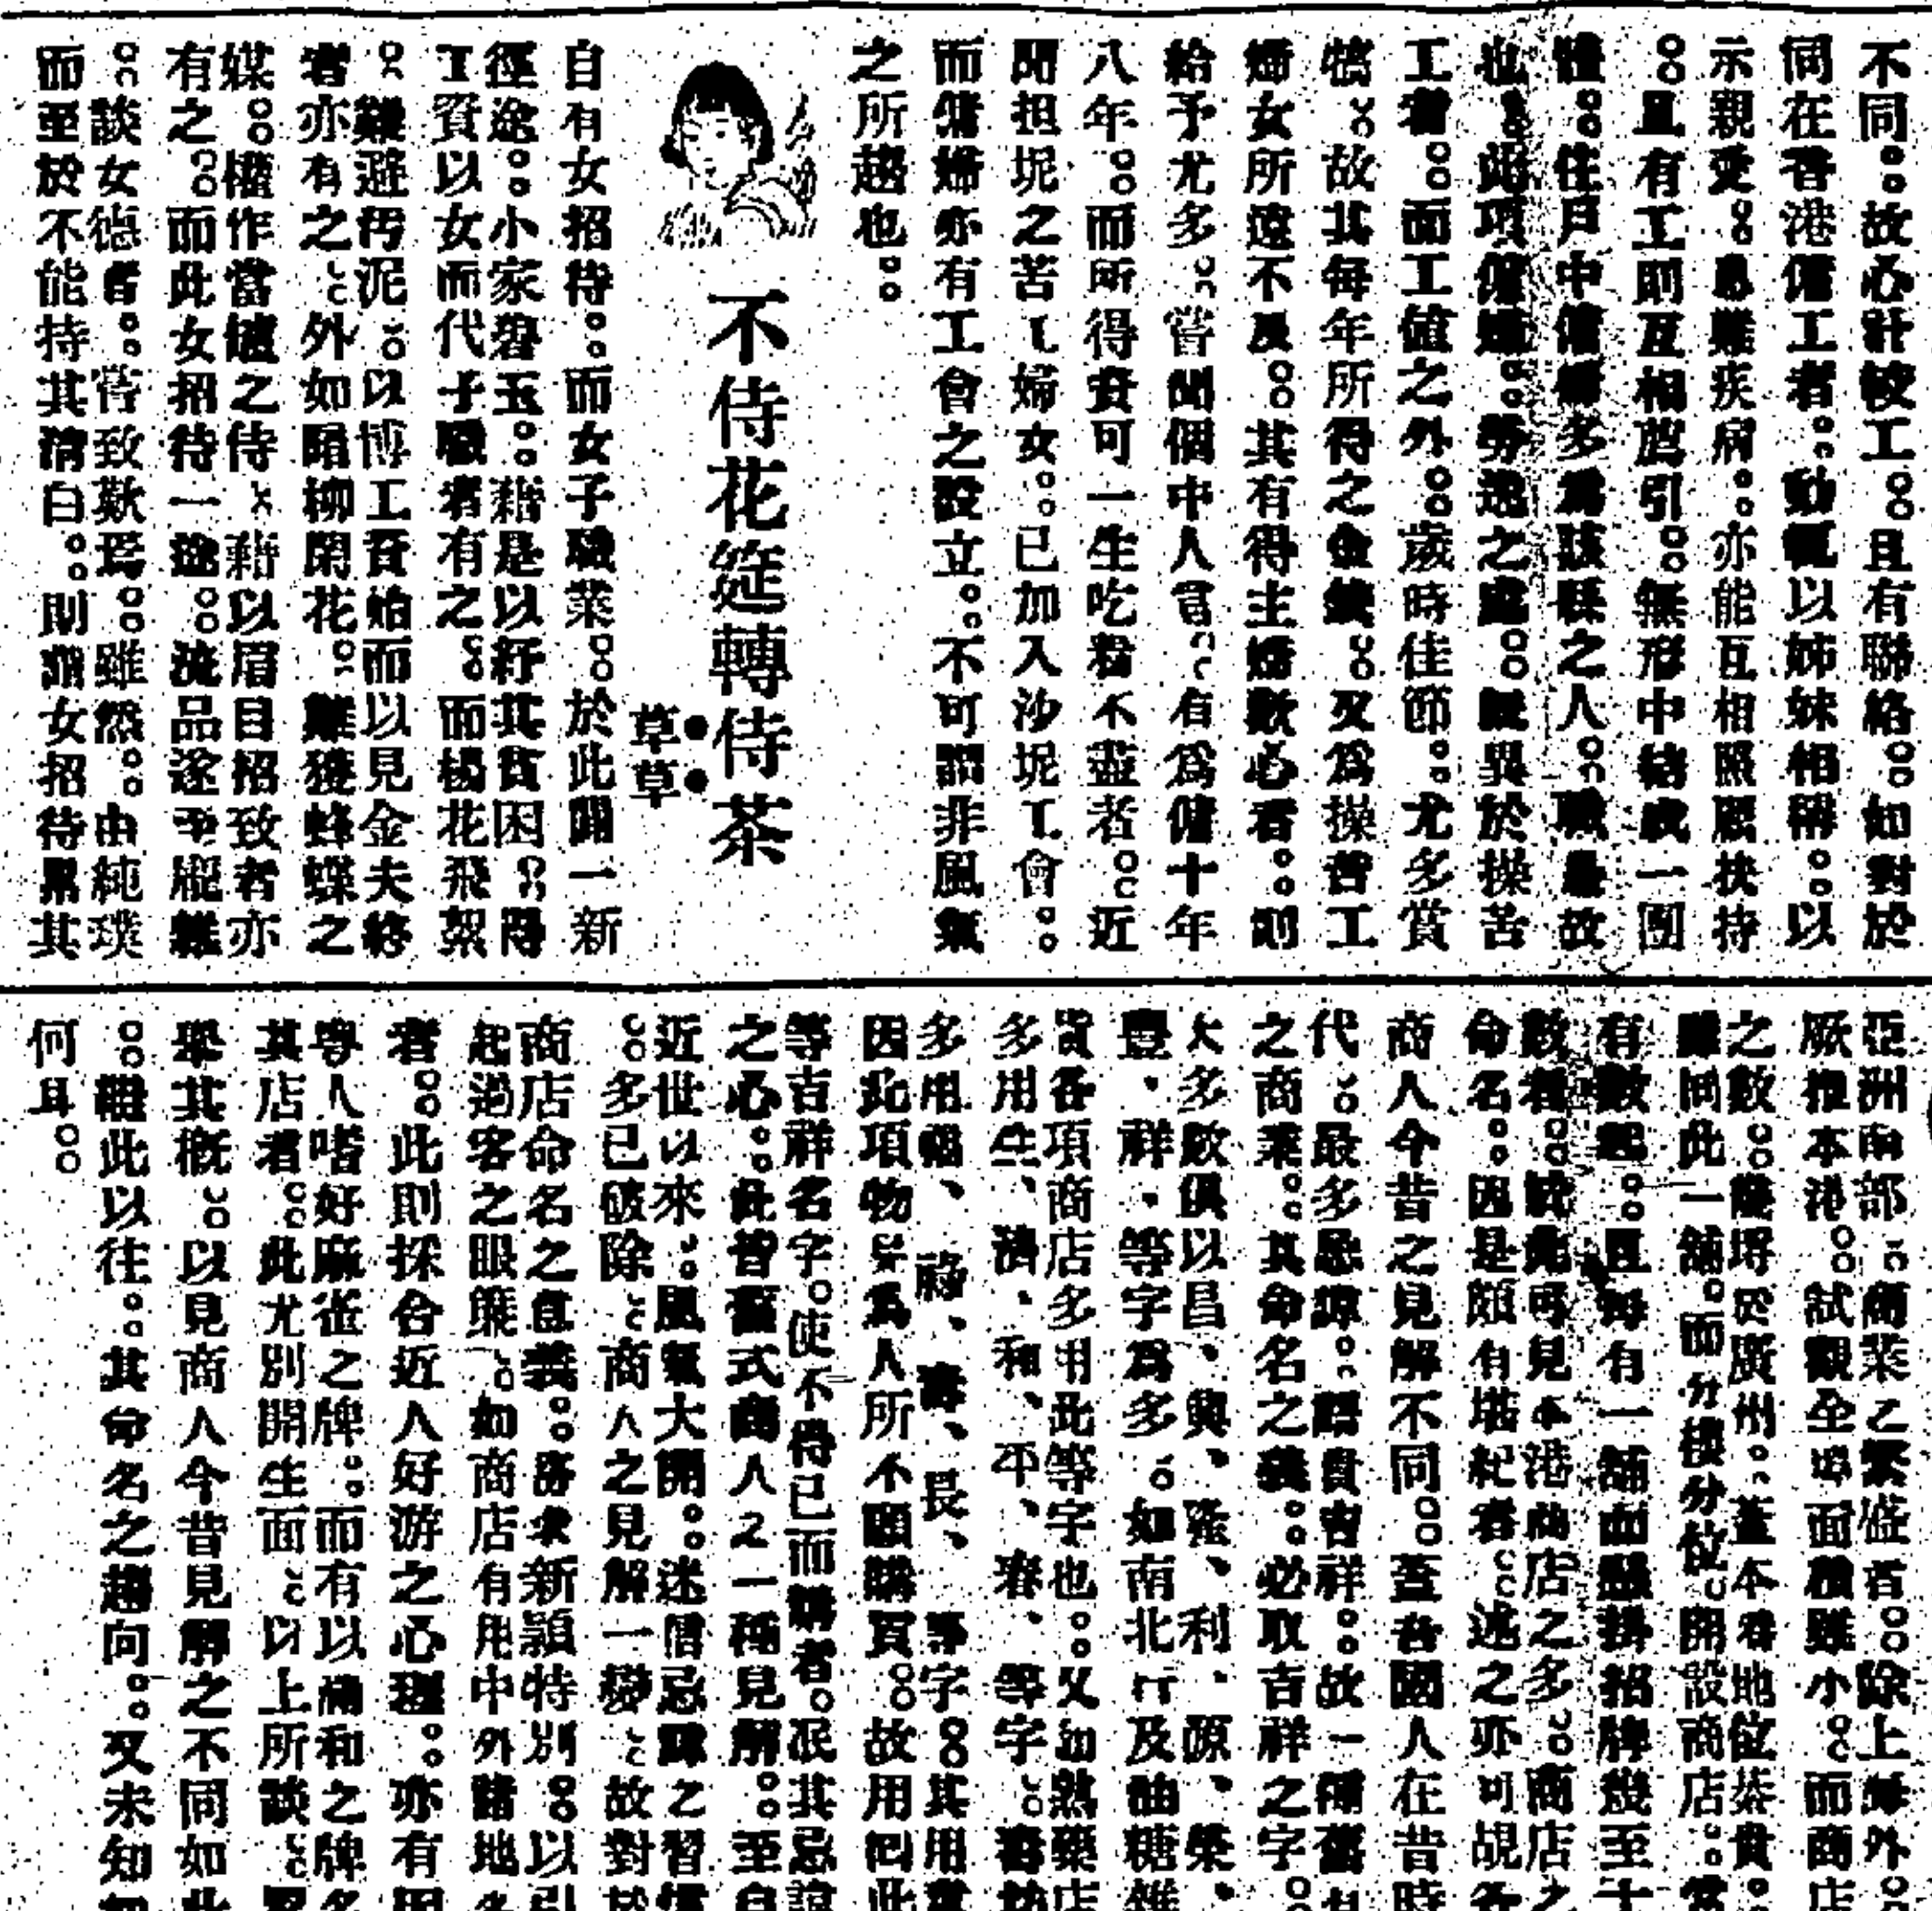 不同。。故心計較工。。且有聯絡。。如對於
同在香港傭工者。。動輒以姊妹相稱。。以
示親愛。。患難疾病。。亦能互相照顧扶持
。。且有工則互相薦引。。無形中結成一團
體。。住戶中傭婦多爲該縣之人。。職是故
也。。此項傭婦。。勞逸之處。。旣異於操苦
工者。。而工値之外。。歲時佳節。。尤多賞
犒。。故其每年所得之金錢。。又爲操苦工
婦女所遠不及。。其有得主婦歡心者。。則
給予尤多。。嘗聞個中人言。。有爲傭十年
八年。。而所得資可一生吃着不盡者。。近
聞担坭之苦工婦女。。已加入沙坭工會。。
而傭婦亦有工會之設立。。不可謂非風氣
之所趨也。。
不侍花筵轉侍茶
草草
自有女招待。。而女子職業。。於此開一新
徑途。。小家碧玉。。藉是以紓其貧困。。得
工資以女而代子職者有之。。而楊花飛絮
。。難避汚泥。。以博工資始而以見金夫終
者亦有之。。外如暗柳閑花。。難獲蜂蝶之
媒。。權作當罏之侍。。藉以眉目招致者亦
有之。。而此女招待一途。。流品遂爲龐雜
。。談女德者。。嘗致歎焉。。雖然。。由純璞
而至於不能持其淸白。。則謂女招待累其
亞洲南部。。商業之繁盛者。。除上海外。。
厥推本港。。試觀全埠面積雖小。。而商店
之數。。幾埓於廣州。。蓋本港地位荼貴。。
雖同此一舖。。而分樓分位。。開設商店。。
有數起。。且每有一舖面懸掛招牌幾至十
數者。。於此可見本港商店之多。。商店之
命名。。因是頗有堪紀者。。述之亦可覘各
商人今昔之見解不同。。蓋吾國人在昔時
代。。最多忌諱。。酷貴吉祥。。故一種舊
之商業。。其命名之義。。必取吉祥之字。。
大多數俱以昌、興、隆、利、源、榮、
豐、祥、等字爲多。。如南北行及油糖雜
貨各項商店多用此等字也。。又如熟藥店
多用生、濟、和、平、春、等字。。壽
多用福、祿、壽、長、等字。。其用
因此項物爲人所不願購買。。故用此
等吉祥名字。使不得已而購者。泯其忌諱
之心。。此皆舊式商人之一種見解。。至自
近世以來。。風氣大開。。迷信忌諱之習慣
。。多已破除。。商人之見解一變。。故對於
商店命名之意義。。務求新穎特別。。以引
起過客之眼簾。。如商店有用中外諸地名
者。。此則採合近人好游之心理。。亦有因
粤人嗜好麻雀之牌。。而有以滿和之牌名
其店者。。此尤別開生面。。以上所談。。畧
舉其槪。。以見商人今昔見解之不同如此
。。繼此以往。。其命名之趨向。。又未知如
何耳。。